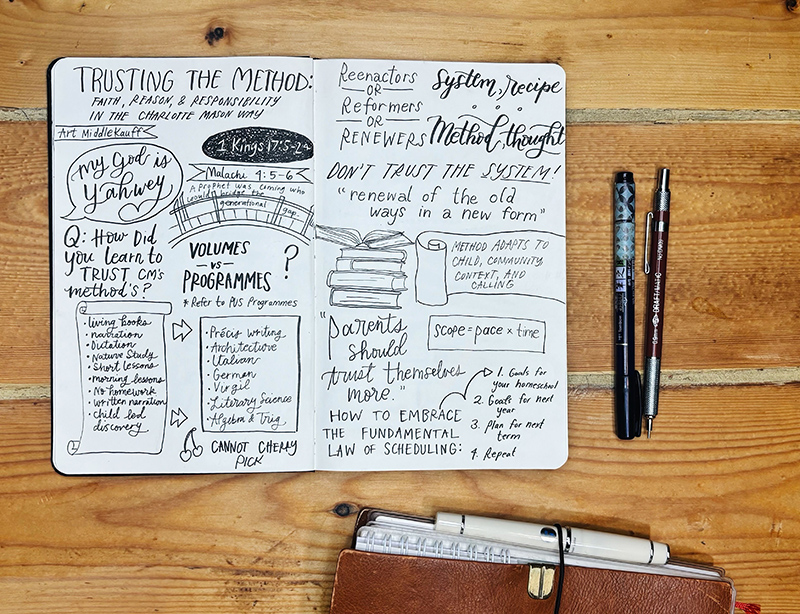 TRUSTING THE METHOD:
FAITH, REASON, & RESPONSIBILITY
IN THE CHARLOTTE MASON WAY
Art Middlekauff
1 Kings 17:5-24
my God is
Yahwey
Malachi 4:5-6
A prophet was coming who
would bridge the
generational
gap.
Q: How Did
you learn to
TRUST CM's
method's?
VOLUMES
-vs-
PROGRAMMES
?
* Refer to PUS Programmes
• living books
• narration
• Dictation
• Nature Study
• Short lessons
• morning lessons
• No homework
• written narration
• Child led
discovery
• Précis writing
• Architecture
• Italian
• German
• Virgil
• Literary Science
• Algebra & Trig
CANNOT CHERRY
PICK
Reenactors
-OR-
Reformers
-OR-
RENEWERS
System, recipe
Method, thought
DON'T TRUST THE SYSTEM!
"renewal of the old
ways in a new form"
METHOD ADAPTS TO
CHILD, COMMUNITY
CONTEXT, AND
CALLING
"parents
should
trust themselves
more."
SCOPE = pace × time
HOW TO EMBRACE
THE FUNDAMENTAL
LAW OF SCHEDULING:
1. Goals for
your homeschool
2. Goals for next
year
3. Plan for next
term
4. Repeat